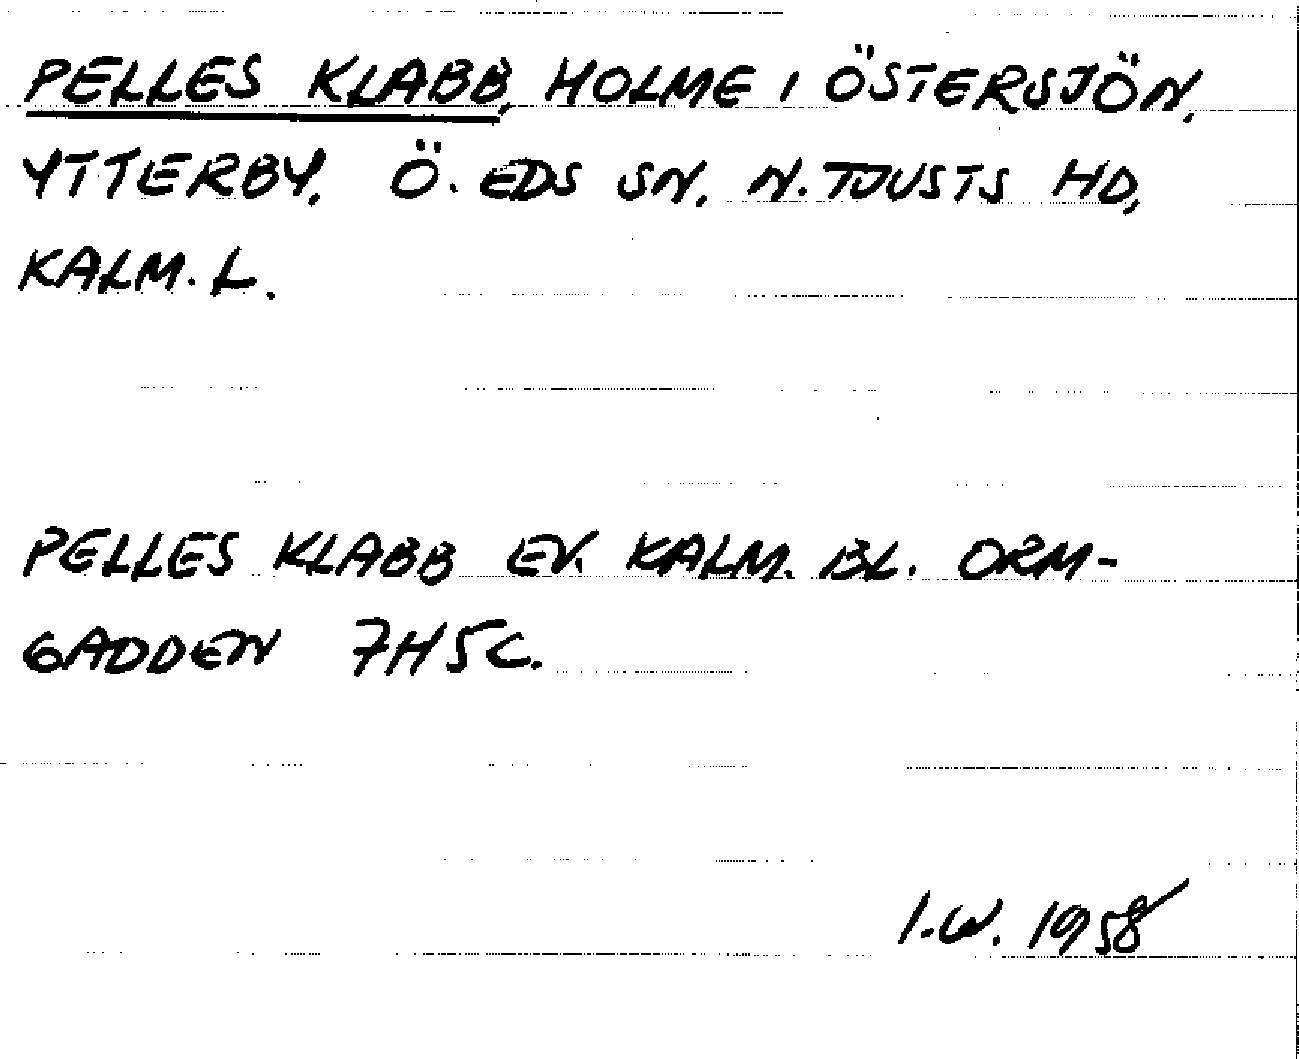 PELLES KLABB, HOLME I ÖSTERSJÖN,
YTTERBY, Ö. EDS SN, N. TJUSTS HD,
KALM. L.
PELLES KLABB EK. KALM. BL. ORM-
GADDEN 7H5C.
I.W. 1958